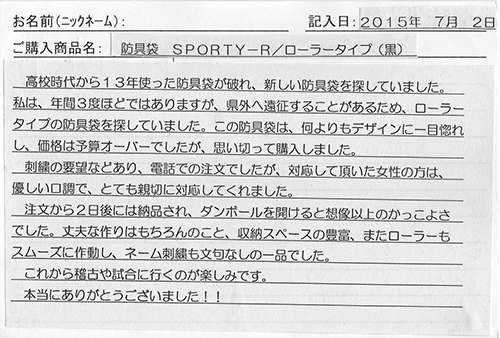 お名前(ニックネーム): 記入日: 2015年 7月 2日
ご購入商品名: 防具袋 SPORTY-R/ローラータイプ(黒)
高校時代から13年使った防具袋が破れ、新しい防具袋を探していました。
私は、年間3度ほどではありますが、県外へ遠征することがあるため、ローラー
タイプの防具袋を探していました。この防具袋は、何よりもデザインに一目惚れ
し、価格は予算オーバーでしたが、思い切って購入しました。
刺繍の要望などあり、電話での注文でしたが、対応して頂いた女性の方は、
優しい口調で、とても親切に対応してくれました。
注文から2日後には納品され、ダンボールを開けると想像以上のかっこよさ
でした。丈夫な作りはもちろんのこと、収納スペースの豊富、またローラーも
スムーズに作動し、ネーム刺繍も文句なしの一品でした。
これから稽古や試合に行くのが楽しみです。
本当にありがとうございました!!